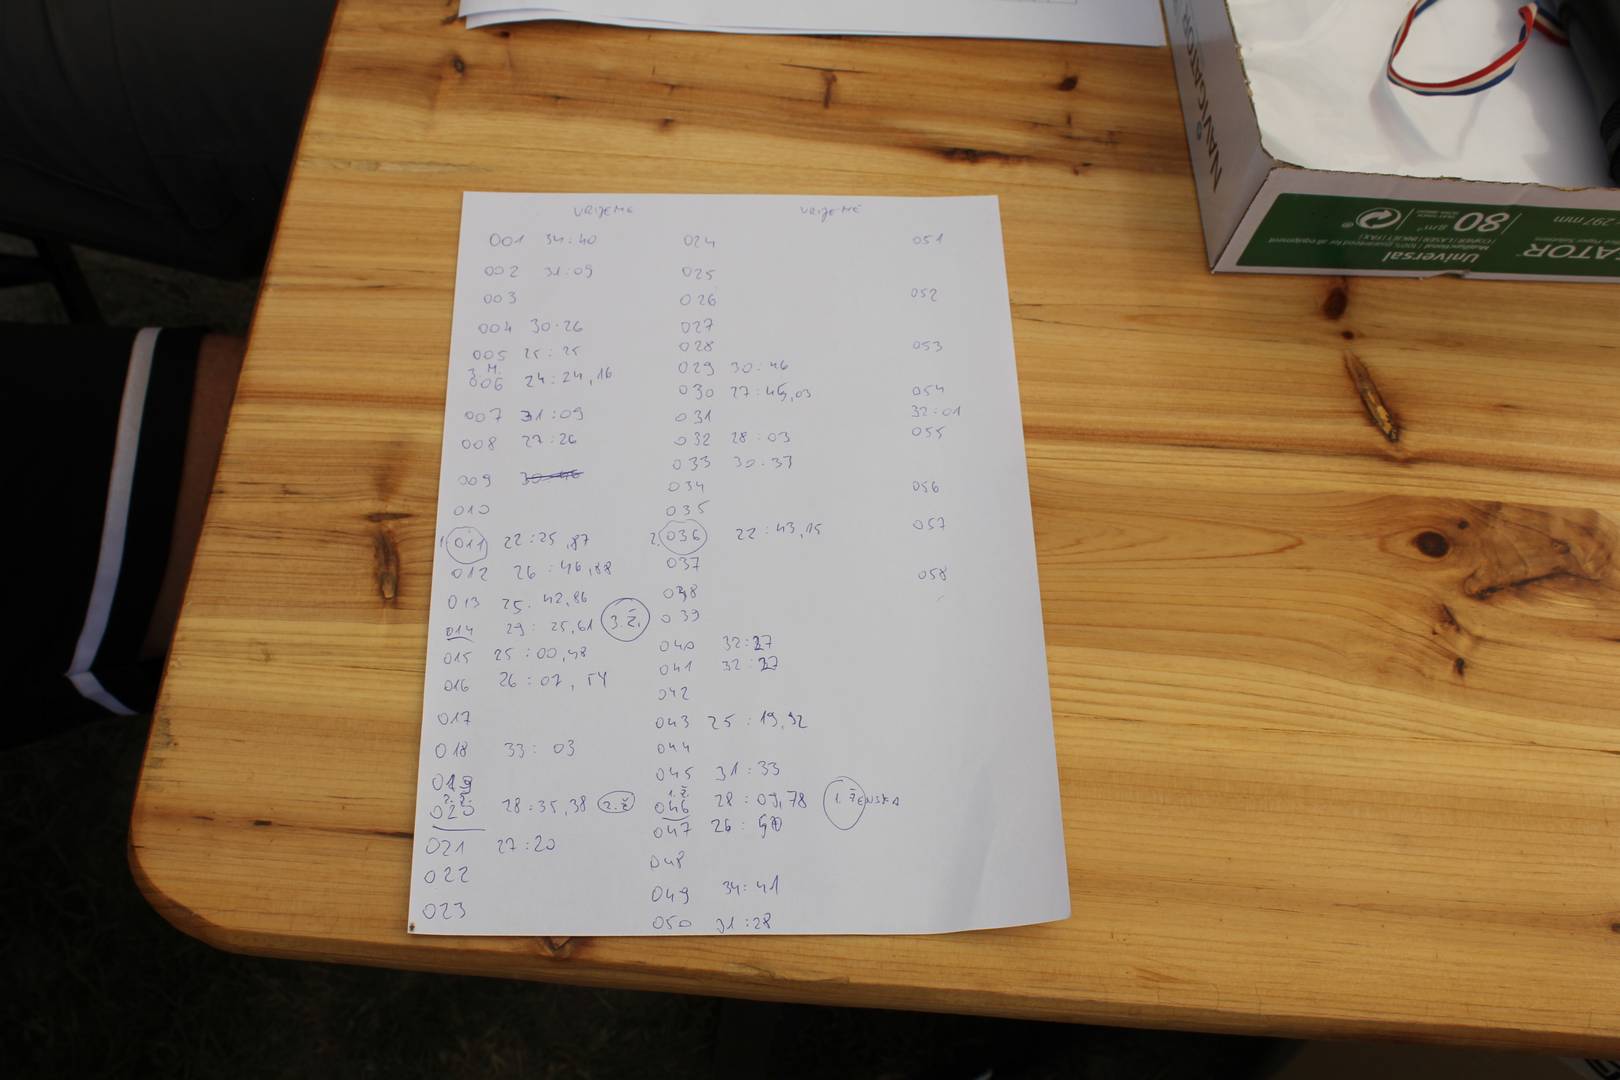 VRIJEME
001 34:40
002 31:09
003
004 30:26
005 25:25
3. M.
006 24:24,16
007 31:09
008 27:26
009
010
1. 011 22:25,87
012 26:46,88
013 25.42,86
014 29:25,61 3. Ž.
015 25:00,48
016 26:07,54
017
018 33:03
019
2. Ž.
020 28:35,38 2. Ž
021 27:20
022
023
VRIJEME
024
025
026
027
028
029 30:46
030 27:45,03
031
032 28:03
033 30:37
034
035
2. 036 22:43,15
037
038
039
040 32:27
041 32:27
042
043 25:19,92
044
045 31:33
1. Ž.
046 28:09,78 1. ŽENSKA
047 26:
048
049 34:41
050 31:28
051
052
053
054
32:01
055
056
057
058
NAVIGATOR
Universal
80 g/m²
297 mm